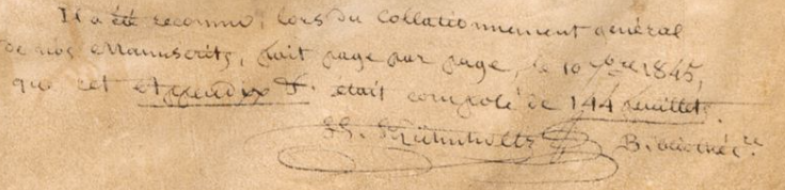 Il a été reconnu, lors du Collationnement général
de nos Manuscrits, fait page par page, le 10 bre 1845,
que cet Appendix était composé de 144 feuillets.
H. Kühnholtz Bibliothécre